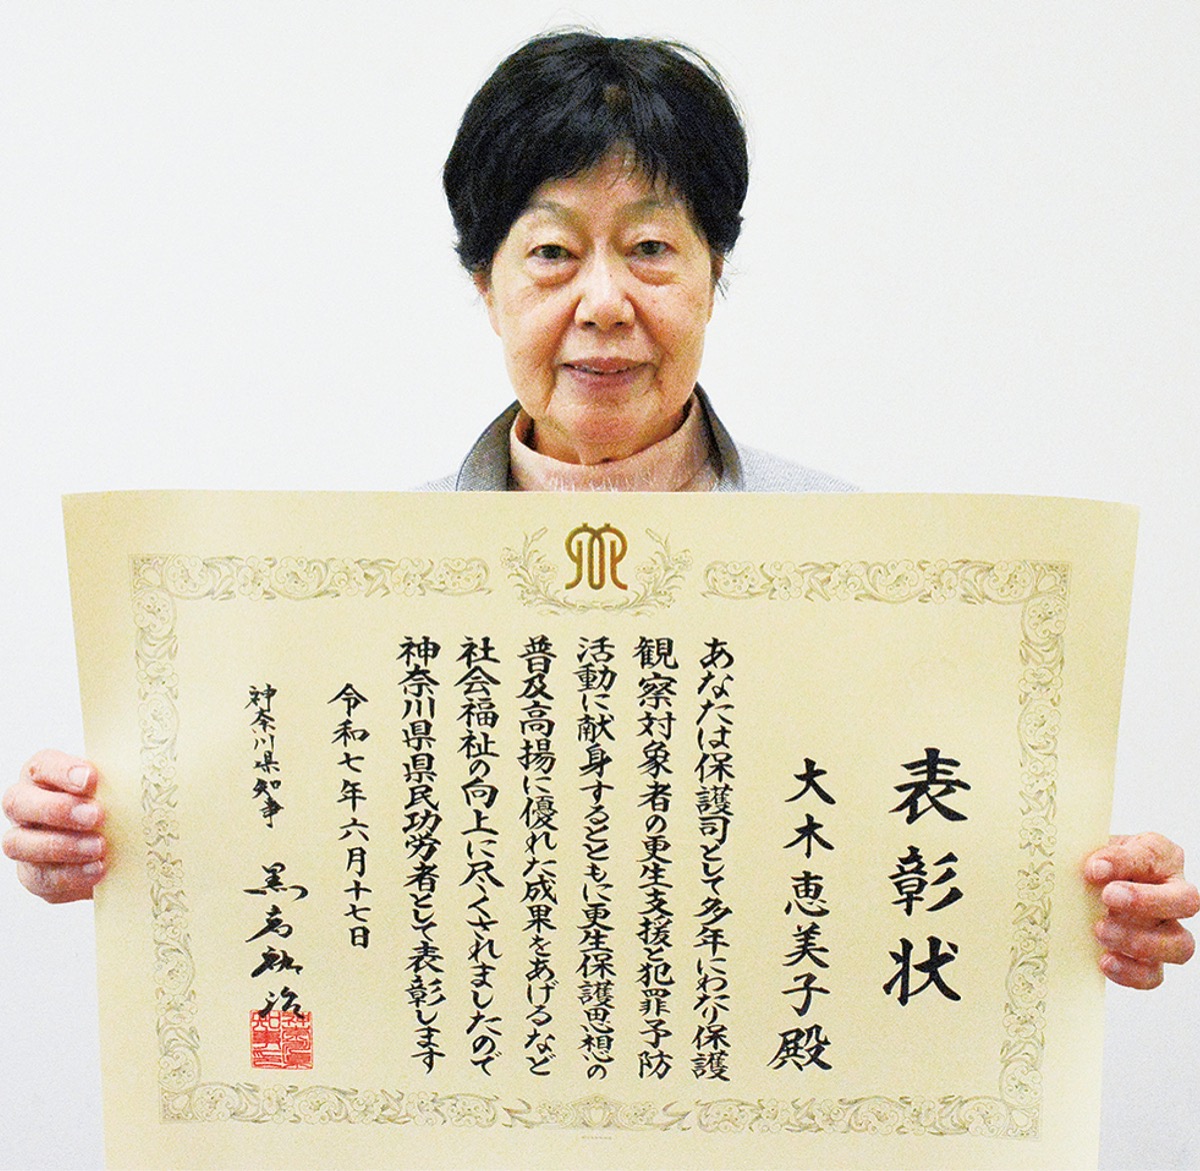 表彰状
大木恵美子殿
あなたは保護司として多年にわたり保護
観察対象者の更生支援と犯罪予防
活動に献身するとともに更生保護思想の
普及高揚に優れた成果をあげるなど
社会福祉の向上に尽くされましたので
神奈川県県民功労者として表彰します
令和七年六月十七日
神奈川県知事 黒岩祐治